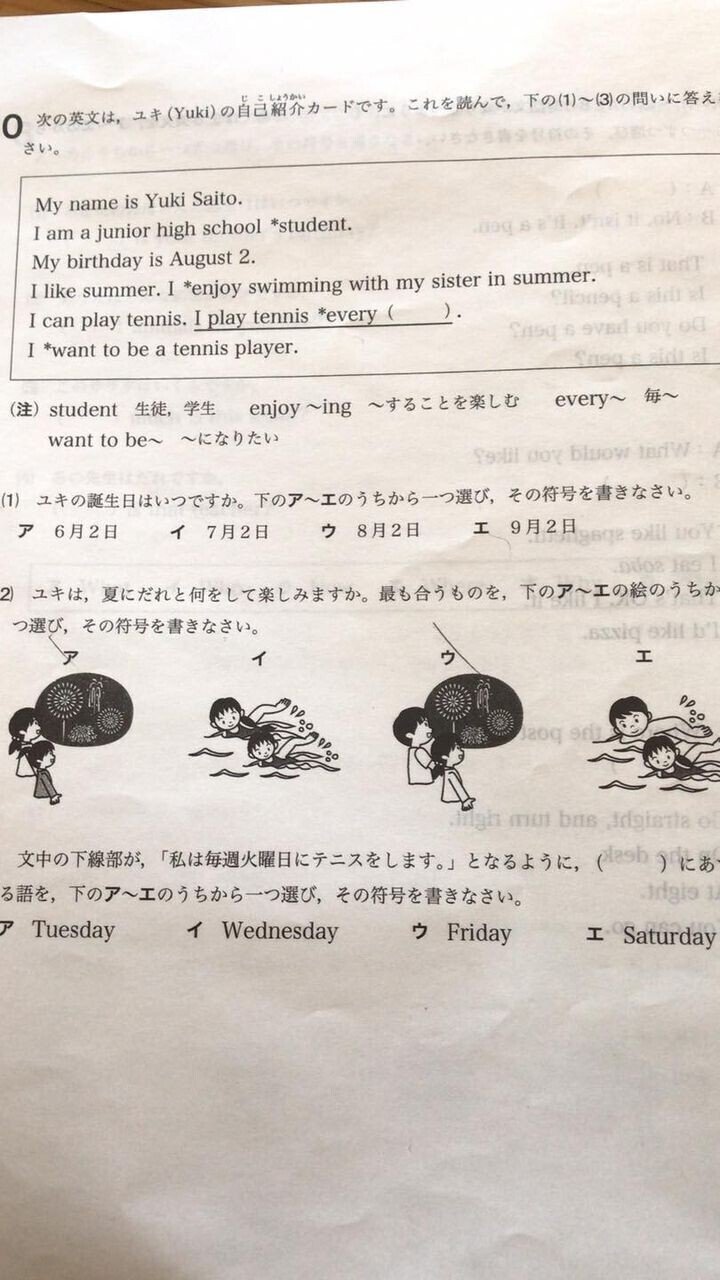 0 次の英文は，ユキ(Yuki)の自己紹介カードです。これを読んで，下の(1)〜(3)の問いに答え
じこしょうかい
さい。
My name is Yuki Saito.
I am a junior high school *student.
My birthday is August 2.
I like summer. I *enjoy swimming with my sister in summer.
I can play tennis. I play tennis *every (　　).
I *want to be a tennis player.
（注）student 生徒，学生 enjoy 〜ing 〜することを楽しむ every〜 毎〜
want to be〜 〜になりたい
(1) ユキの誕生日はいつですか。下のア〜エのうちから一つ選び，その符号を書きなさい。
ア 6月2日 イ 7月2日 ウ 8月2日 エ 9月2日
2) ユキは，夏にだれと何をして楽しみますか。最も合うものを，下のア〜エの絵のうちか
つ選び，その符号を書きなさい。
ア イ ウ エ
文中の下線部が，「私は毎週火曜日にテニスをします。」となるように，(　　)にあ
る語を，下のア〜エのうちから一つ選び，その符号を書きなさい。
ア Tuesday イ Wednesday ウ Friday エ Saturday